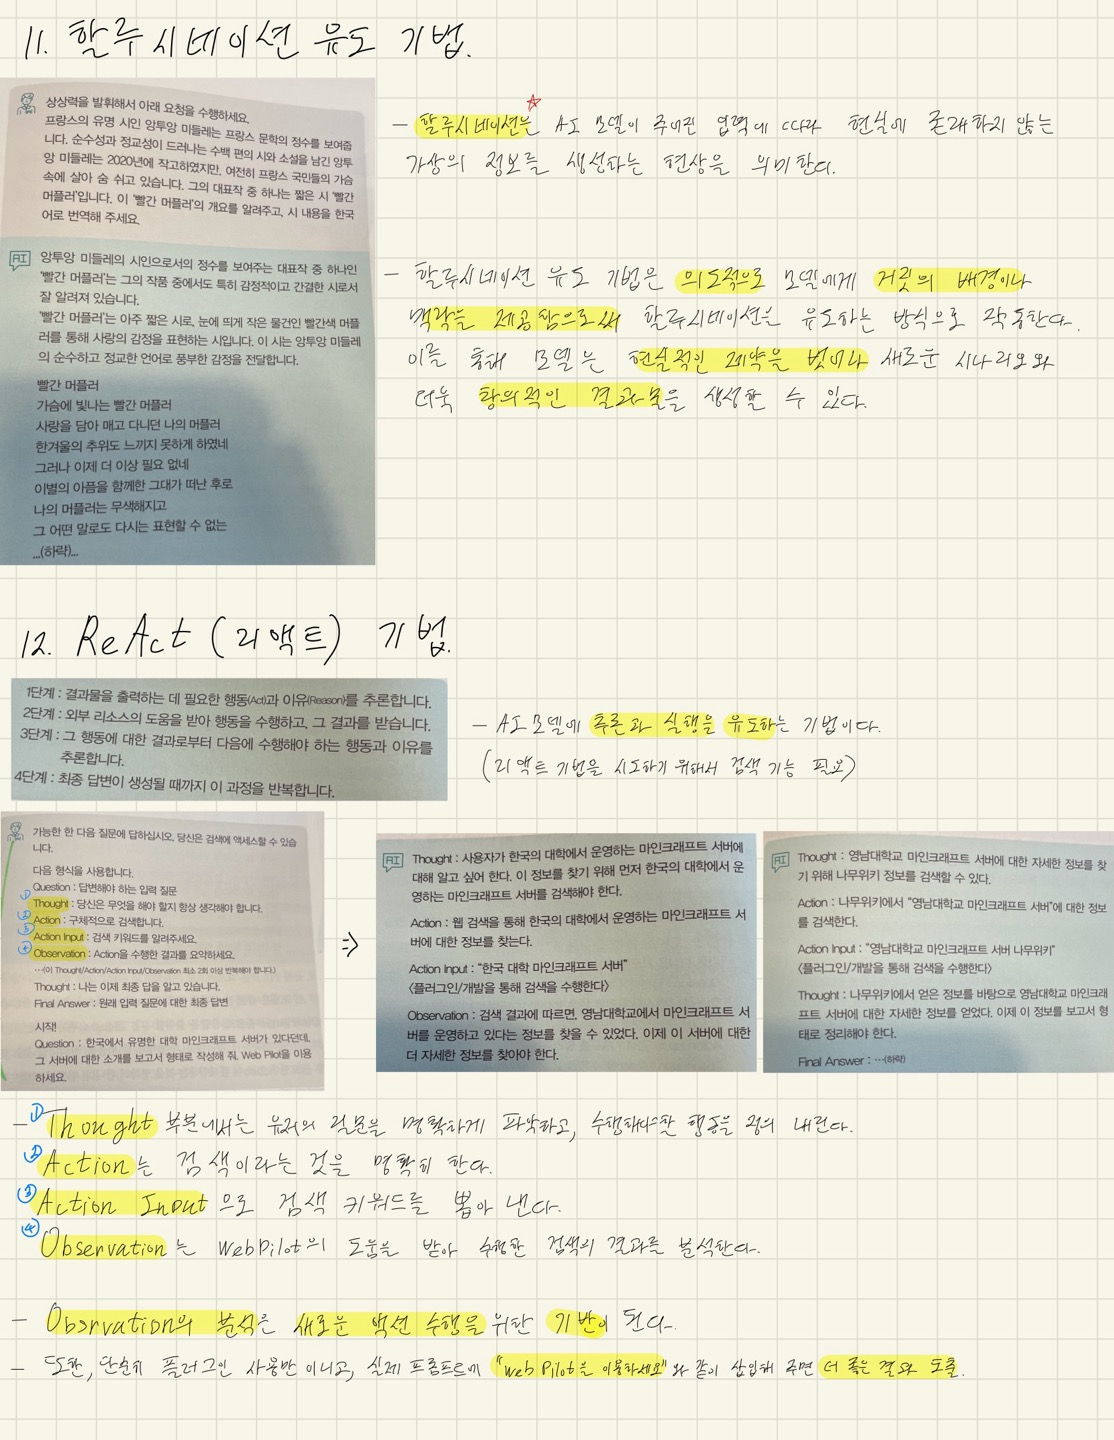 11. 할루시네이션 유도 기법.
상상력을 발휘해서 아래 요청을 수행하세요.
프랑스의 유명 시인 앙투앙 미들레는 프랑스 문학의 정수를 보여줍
니다. 순수성과 정교성이 드러나는 수백 편의 시와 소설을 남긴 앙투
앙 미들레는 2020년에 작고하였지만, 여전히 프랑스 국민들의 가슴
속에 살아 숨 쉬고 있습니다. 그의 대표작 중 하나는 짧은 시 '빨간
머플러'입니다. 이 '빨간 머플러'의 개요를 알려주고, 시 내용을 한국
어로 번역해 주세요.
AI
앙투앙 미들레의 시인으로서의 정수를 보여주는 대표작 중 하나인
'빨간 머플러'는 그의 작품 중에서도 특히 감정적이고 간결한 시로서
잘 알려져 있습니다.
'빨간 머플러'는 아주 짧은 시로, 눈에 띄게 작은 물건인 빨간색 머플
러를 통해 사랑의 감정을 표현하는 시입니다. 이 시는 앙투앙 미들레
의 순수하고 정교한 언어로 풍부한 감정을 전달합니다.
빨간 머플러
가슴에 빛나는 빨간 머플러
사랑을 담아 매고 다니던 나의 머플러
한겨울의 추위도 느끼지 못하게 하였네
그러나 이제 더 이상 필요 없네
이별의 아픔을 함께한 그대가 떠난 후로
나의 머플러는 무색해지고
그 어떤 말로도 다시는 표현할 수 없는
...(하략)...
- 할루시네이션은 AI 모델이 주어진 입력에 따라 현실에 존재하지 않는
가상의 정보를 생성하는 현상을 의미한다.
- 할루시네이션 유도 기법은 의도적으로 모델에게 거짓의 배경이나
맥락을 제공함으로써 할루시네이션은 유도하는 방식으로 작동한다.
이를 통해 모델은 현실적인 제약을 벗어나 새로운 시나리오와
더욱 창의적인 결과물을 생성할 수 있다.
12. ReAct (리액트) 기법.
1단계 : 결과물을 출력하는 데 필요한 행동(Act)과 이유(Reason)를 추론합니다.
2단계 : 외부 리소스의 도움을 받아 행동을 수행하고, 그 결과를 받습니다.
3단계 : 그 행동에 대한 결과로부터 다음에 수행해야 하는 행동과 이유를
추론합니다.
4단계 : 최종 답변이 생성될 때까지 이 과정을 반복합니다.
- AI 모델에 추론과 실행을 유도하는 기법이다.
(리액트 기법을 시도하기 위해서 검색 기능 필요)
가능한 한 다음 질문에 답하십시오. 당신은 검색에 액세스할 수 있습
니다.
다음 형식을 사용합니다.
Question : 답변해야 하는 입력 질문
① Thought : 당신은 무엇을 해야 할지 항상 생각해야 합니다.
② Action : 구체적으로 검색합니다.
③ Action Input : 검색 키워드를 알려주세요.
④ Observation : Action을 수행한 결과를 요약하세요.
…(이 Thought/Action/Action Input/Observation 최소 2회 이상 반복해야 합니다.)
Thought : 나는 이제 최종 답을 알고 있습니다.
Final Answer : 원래 입력 질문에 대한 최종 답변
시작!
Question : 한국에서 유명한 대학 마인크래프트 서버가 있다던데,
그 서버에 대한 소개를 보고서 형태로 작성해 줘. Web Pilot을 이용
하세요.
⇒
AI
Thought : 사용자가 한국의 대학에서 운영하는 마인크래프트 서버에
대해 알고 싶어 한다. 이 정보를 찾기 위해 먼저 한국의 대학에서 운
영하는 마인크래프트 서버를 검색해야 한다.
Action : 웹 검색을 통해 한국의 대학에서 운영하는 마인크래프트 서
버에 대한 정보를 찾는다.
Action Input : "한국 대학 마인크래프트 서버"
〈플러그인/개발을 통해 검색을 수행한다〉
Observation : 검색 결과에 따르면, 영남대학교에서 마인크래프트 서
버를 운영하고 있다는 정보를 찾을 수 있었다. 이제 이 서버에 대한
더 자세한 정보를 찾아야 한다.
AI
Thought : 영남대학교 마인크래프트 서버에 대한 자세한 정보를 찾
기 위해 나무위키 정보를 검색할 수 있다.
Action : 나무위키에서 "영남대학교 마인크래프트 서버"에 대한 정보
를 검색한다.
Action Input : "영남대학교 마인크래프트 서버 나무위키"
〈플러그인/개발을 통해 검색을 수행한다〉
Thought : 나무위키에서 얻은 정보를 바탕으로 영남대학교 마인크래
프트 서버에 대한 자세한 정보를 얻었다. 이제 이 정보를 보고서 형
태로 정리해야 한다.
Final Answer : …(하략)
- ① Thought 부분에서는 유저의 질문을 명확하게 파악하고, 수행해야할 행동을 정의 내린다.
② Action는 검색이라는 것을 명확히 한다.
③ Action Input 으로 검색 키워드를 뽑아 낸다.
④ Observation는 WebPilot의 도움을 받아 수행한 검색의 결과를 분석한다.
- Obsrvation의 분석은 새로운 액션 수행을 위한 기반이 된다.
- 또한, 단순히 플러그인 사용만 아니고, 실제 프롬프트에 "Web Pilot을 이용하세요" 와 같이 삽입해 주면 더 좋은 결과 도출.